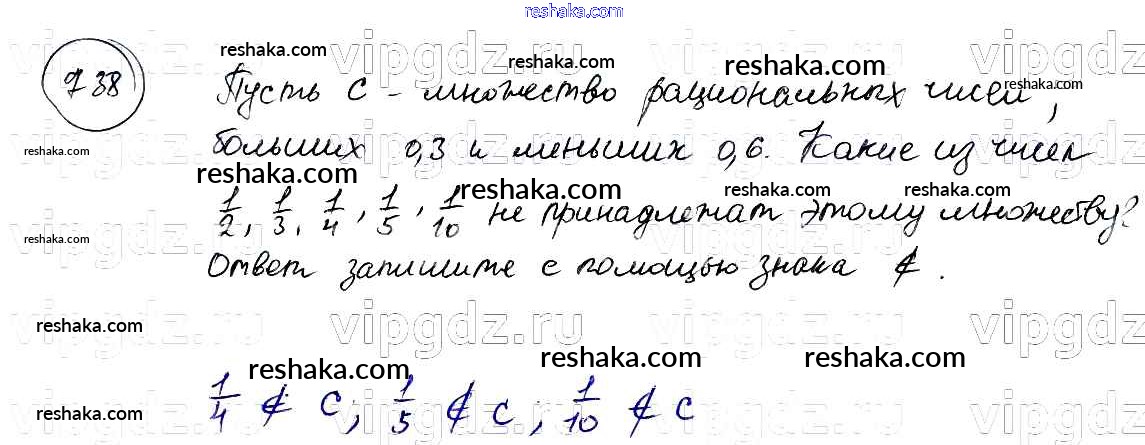 reshaka.com
738
Пусть C - множество рациональных чисел,
больших 0,3 и меньших 0,6. Какие из чисел
1/2, 1/3, 1/4, 1/5, 1/10 не принадлежат этому множеству?
Ответ запишите с помощью знака ∉.
1/4 ∉ C; 1/5 ∉ C; 1/10 ∉ C
vipgdz.ru vipgdz.ru vipgdz.ru vipgdz.ru
reshaka.com reshaka.com reshaka.com reshaka.com
reshaka.com reshaka.com reshaka.com reshaka.com
reshaka.com
vipgdz.ru vipgdz.ru vipgdz.ru vipgdz.ru
reshaka.com reshaka.com reshaka.com reshaka.com
reshaka.com